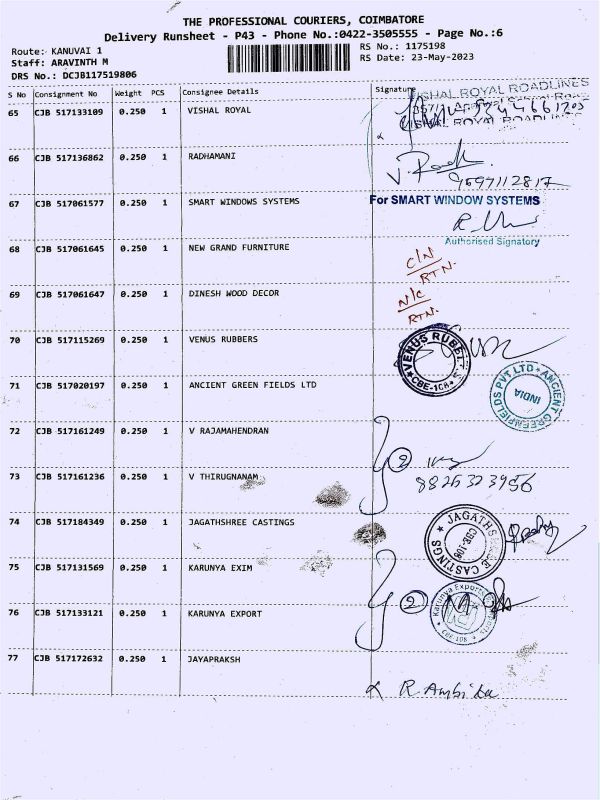 THE PROFESSIONAL COURIERS, COIMBATORE
Delivery Runsheet - P43 - Phone No.:0422-3505555 - Page No.:6
Route: KANUVAI 1
Staff: ARAVINTH M
DRS No.: DCJB117519806
RS No.: 1175198
RS Date: 23-May-2023
S No Consignment No Weight PCS Consignee Details Signature
VISHAL ROYAL ROADLINES
65 CJB 517133109 0.250 1 VISHAL ROYAL
VISHAL ROYAL ROADLINES
66 CJB 517136862 0.250 1 RADHAMANI
9597112817
67 CJB 517061577 0.250 1 SMART WINDOWS SYSTEMS For SMART WINDOW SYSTEMS
Authorised Signatory
68 CJB 517061645 0.250 1 NEW GRAND FURNITURE
C/N
RTN.
69 CJB 517061647 0.250 1 DINESH WOOD DECOR
N/C
RTN.
70 CJB 517115269 0.250 1 VENUS RUBBERS
VENUS RUBBERS
CBE-108
71 CJB 517020197 0.250 1 ANCIENT GREEN FIELDS LTD
ANCIENT GREENFIELDS PVT LTD
INDIA
72 CJB 517161249 0.250 1 V RAJAMAHENDRAN
2
73 CJB 517161236 0.250 1 V THIRUGNANAM
8825323956
74 CJB 517184349 0.250 1 JAGATHSHREE CASTINGS
JAGATHSHREE CASTINGS
CBE-108
75 CJB 517131569 0.250 1 KARUNYA EXIM
2
76 CJB 517133121 0.250 1 KARUNYA EXPORT
Karunya Exports
CBE-108
77 CJB 517172632 0.250 1 JAYAPRAKSH
R. Ambika